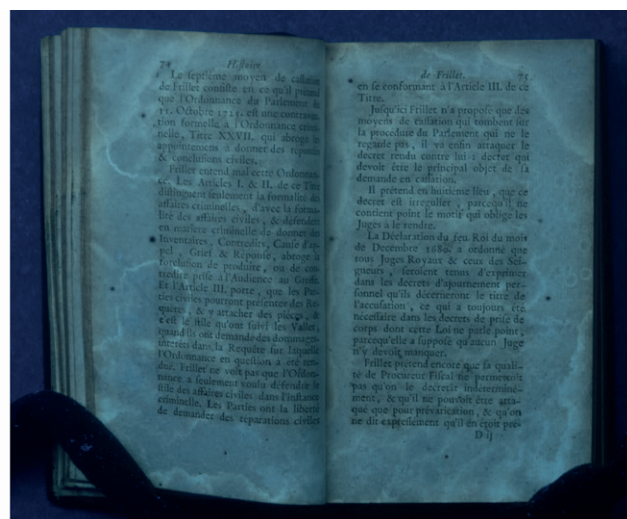 74 Histoire
Le septième moyen de cassation
de Frillet consiste en ce qu'il prétend
que l'Ordonnance du Parlement du
15. Octobre 1725. est une contraven-
tion formelle à l'Ordonnance crimi-
nelle, Titre XXVII. qui abroge les
appointemens à donner des reponses
& conclusions civiles.
Frillet entend mal cette Ordonnan-
ce. Les Articles I. & II. de ce Titre
distinguent seulement la formalité des
affaires criminelles, d'avec la forma-
lité des affaires civiles, & défendent
en matiere criminelle de donner des
Inventaires, Contredits, Cause d'ap-
pel, Grief & Réponse, abroge la
forclusion de produire, ou de con-
tredire prise à l'Audience au Greffe.
Et l'Article III. porte, que les Par-
ties civiles pourront présenter des Re-
quêtes, & y attacher des pièces, &
c'est le stile qu'ont suivi les Vallet,
quand ils ont demandé des dommages-
interêts dans la Requête sur laquelle
l'Ordonnance en question a été ren-
due. Frillet ne voit pas que l'Ordon-
nance a seulement voulu défendre le
stile des affaires civiles dans l'instance
criminelle. Les Parties ont la liberté
de demander des reparations civiles
de Frillet. 75
en se conformant à l'Article III. de ce
Titre.
Jusqu'ici Frillet n'a proposé que des
moyens de cassation qui tombent sur
la procédure du Parlement qui ne le
regarde pas, il va enfin attaquer le
decret rendu contre lui : decret qui
devoit être le principal objet de sa
demande en cassation.
Il prétend en huitième lieu, que ce
decret est irregulier, parcequ'il ne
contient point le motif qui oblige les
Juges à le rendre.
La Déclaration du feu Roi du mois
de Decembre 1680. a ordonné que
tous Juges Royaux & ceux des Sei-
gneurs, seroient tenus d'exprimer
dans les decrets d'ajournement per-
sonnel qu'ils décerneront le titre de
l'accusation, ce qui a toujours été
necessaire dans les decrets de prise de
corps dont cette Loi ne parle point,
parcequ'elle a supposé qu'aucun Juge
n'y devoit manquer.
Frillet prétend encore que sa quali-
té de Procureur Fiscal ne permettoit
pas qu'on le decretât indéterminé-
ment, & qu'il ne pouvoit être atta-
qué que pour prévarication, & qu'on
ne dit expressément qu'il en étoit pré-
D ij